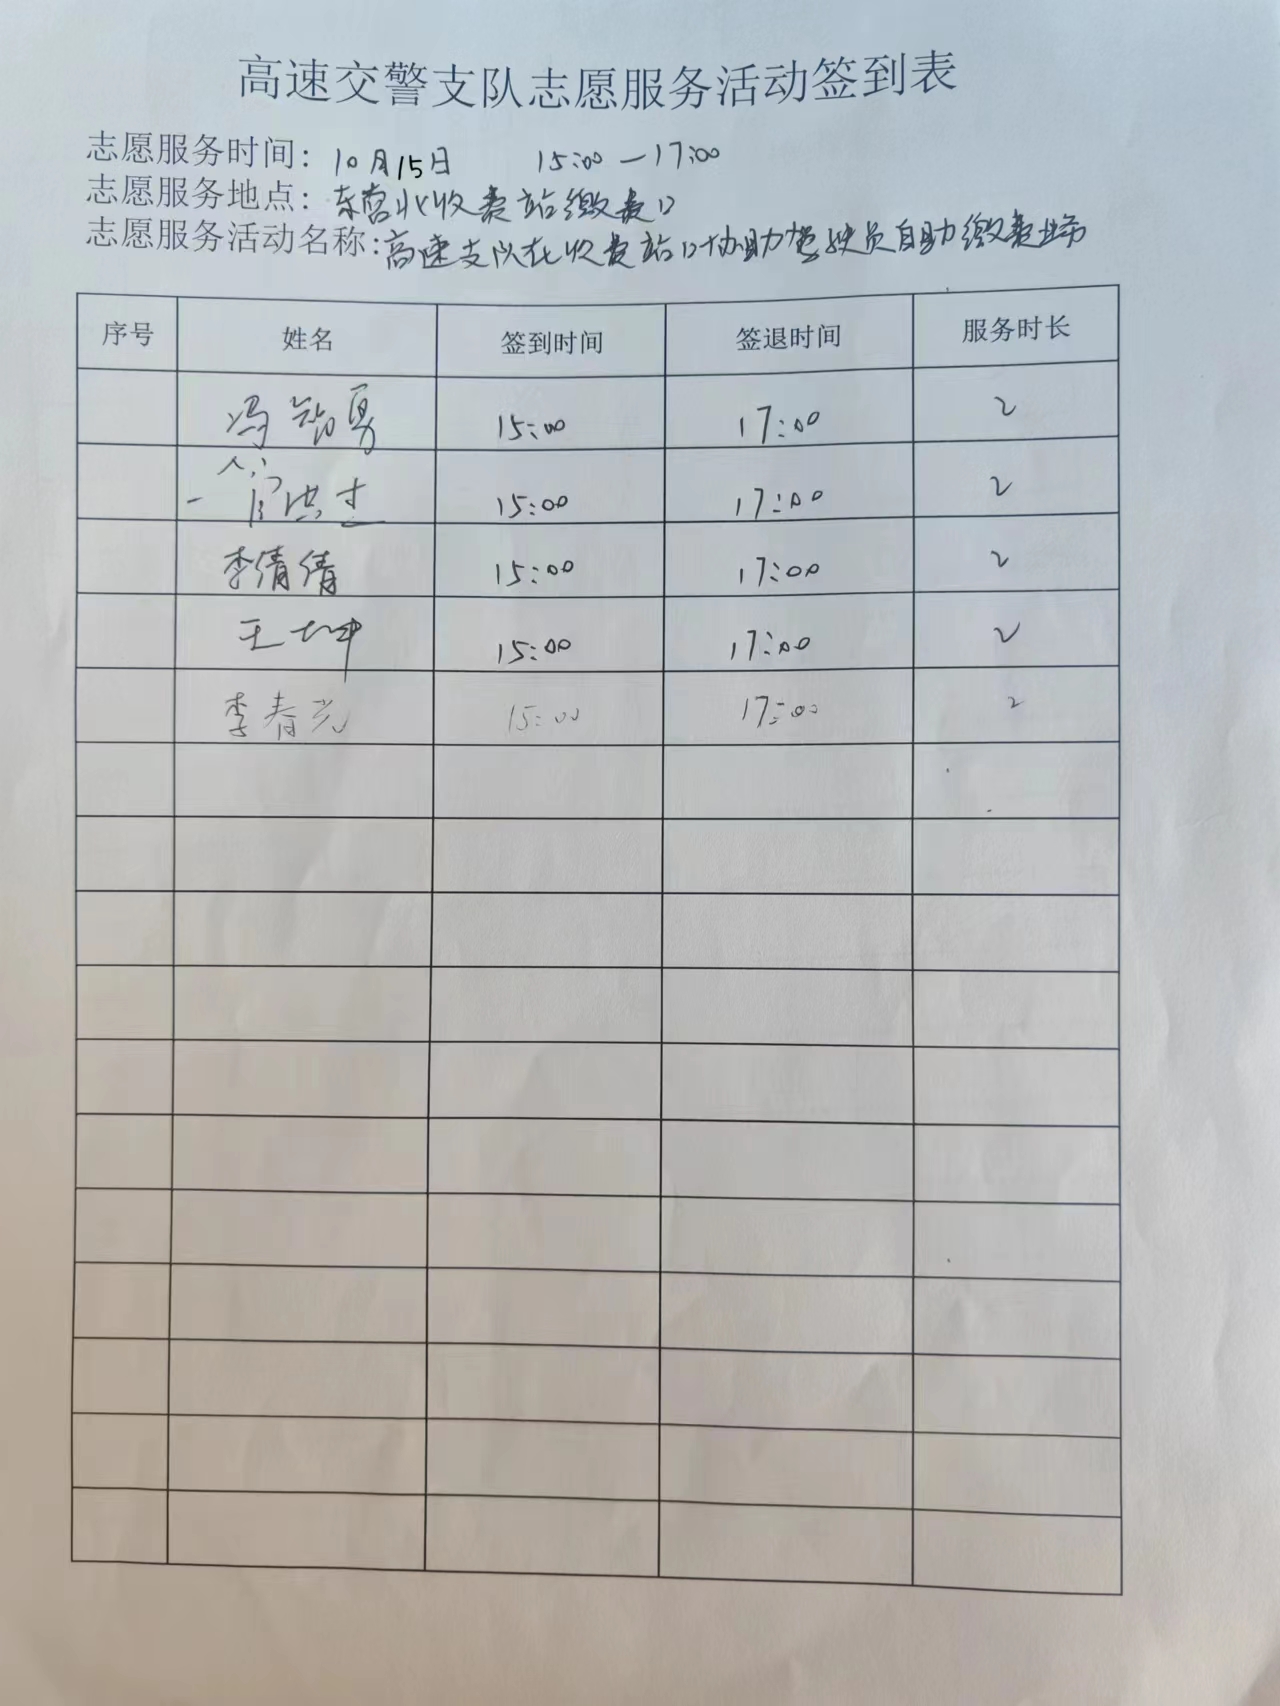 高速交警支队志愿服务活动签到表
志愿服务时间：10月15日 15:00—17:00
志愿服务地点：东营北收费站缴费口
志愿服务活动名称：高速支队在收费站口协助驾驶员自助缴费业务
序号 姓名 签到时间 签退时间 服务时长
冯 勇 15:00 17:00 2
15:00 17:00 2
李倩倩 15:00 17:00 2
王坤 15:00 17:00 2
李春光 15:00 17:00 2